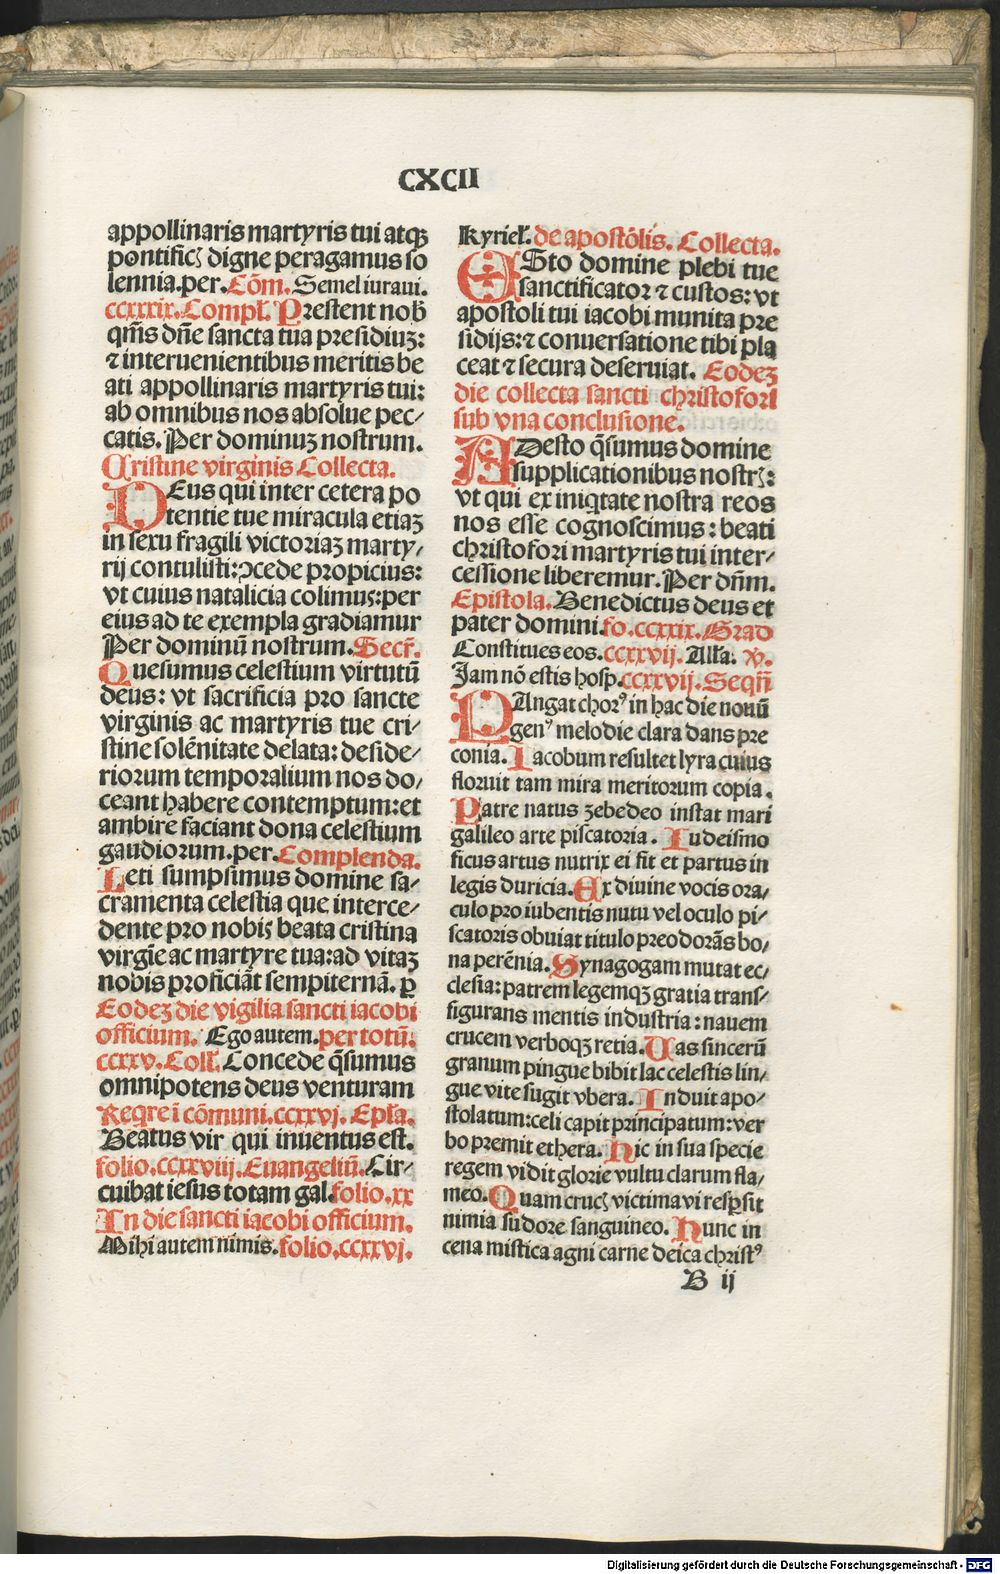 CXCII
appollinaris martyris tui atqꝫ
pontificꝭ digne peragamus so
lennia.per.Cōm. Semel iuraui.
ccxxxix.Compł. Prestent nob̄
qm̄s dn̄e sancta tua presidiuꝫ:
⁊ interuenientibus meritis be
ati appollinaris martyris tui:
ab omnibus nos absolue pec⸗
catis. Per dominuꝫ nostrum.
Cristine virginis Collecta.
DEus qui inter cetera po
tentie tue miracula etiaꝫ
in sexu fragili victoriaꝫ marty⸗
rij contulisti:ꝯcede propicius:
vt cuius natalicia colimus:per
eius ad te exempla gradiamur
Per dominū nostrum. Secr̄.
Quesumus celestium virtutū
deus: vt sacrificia pro sancte
virginis ac martyris tue cri⸗
stine solēnitate delata: deside⸗
riorum temporalium nos do⸗
ceant habere contemptum:et
ambire faciant dona celestium
gaudiorum.per.Complenda.
Leti sumpsimus domine sa⸗
cramenta celestia que interce⸗
dente pro nobis beata cristina
virgīe ac martyre tua:ad vitaꝫ
nobis proficiāt sempiternā. ꝑ
Eodeꝫ die vigilia sancti iacobi
officium. Ego autem.per totū.
ccxxv. Coll̄. Concede q̄sumus
omnipotens deus venturam
Reqre ī cōmuni.ccxxvj. Epl̄a.
Beatus vir qui inuentus est.
folio.ccxxviij. Euangeliū. Cir⸗
cuibat iesus totam gal.folio.xx
In die sancti iacobi officium.
Mihi autem nimis. folio.ccxxvj.
Kyriel̄. de apostōlis. Collecta.
ESto domine plebi tue
sanctificator ⁊ custos: vt
apostoli tui iacobi munita pre
sidijs:⁊ conuersatione tibi pla
ceat ⁊ secura deseruiat. Eodeꝫ
die collecta sancti christofori
sub vna conclusione.
ADesto q̄sumus domine
supplicationibus nostrꝭ:
vt qui ex iniqtate nostra reos
nos esse cognoscimus: beati
christofori martyris tui inter⸗
cessione liberemur. Per dn̄m.
Epistola. Benedictus deus et
pater domini.fo.ccxxix. Grad
Constitues eos.ccxxvij. All̄a. V.
Jam nō estis hosp.ccxxvij. Seqn̄
PAngat chorꝰ in hac die nouū
genꝰ melodie clara dans pre
conia. Iacobum resultet lyra cuius
floruit tam mira meritorum copia.
Patre natus ꝫebedeo instat mari
galileo arte piscatoria. Iudeismo
ficus artus nutrix ei fit et partus in
legis duricia. Ex diuine vocis ora⸗
culo pro iubentis nutu vel oculo pi⸗
scatoris obuiat titulo preodorās bo⸗
na perēnia. Synagogam mutat ec⸗
clesia: patrem legemqꝫ gratia trans⸗
figurans mentis industria: nauem
crucem verboqꝫ retia. Uas sincerū
granum pingue bibit lac celestis lin⸗
gue vite sugit vbera. Induit apo⸗
stolatum:celi capit principatum: ver
bo premit ethera. Hic in sua specie
regem vidit glorie vultu clarum fla⸗
meo. Quam crucꝭ victima vi resꝑsit
nimia sudore sanguineo. Hunc in
cena mistica agni carne deica christꝰ
B ij
Digitalisierung gefördert durch die Deutsche Forschungsgemeinschaft - DFG